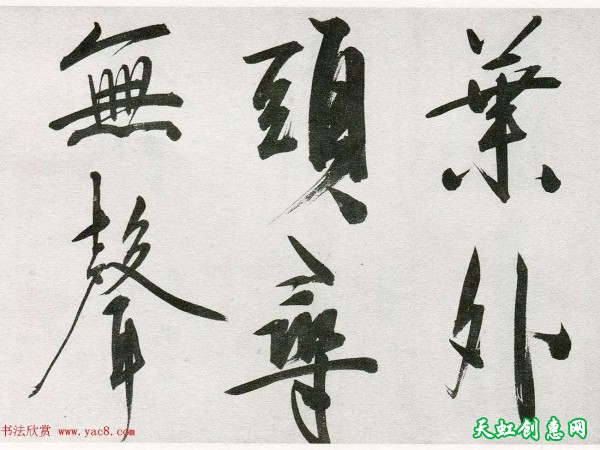 葉外
頭
無聲
书法欣赏 www.yac8.com
天虹创惠网